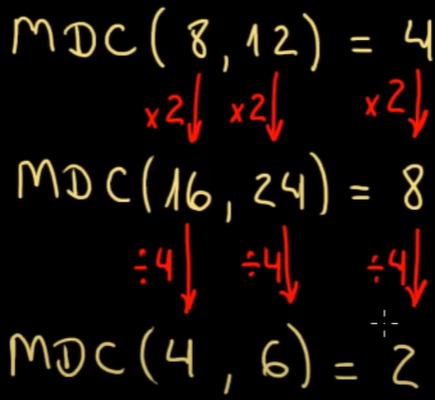 MDC(8,12) = 4
×2 ×2 ×2
MDC(16,24) = 8
÷4 ÷4 ÷4
MDC(4,6) = 2